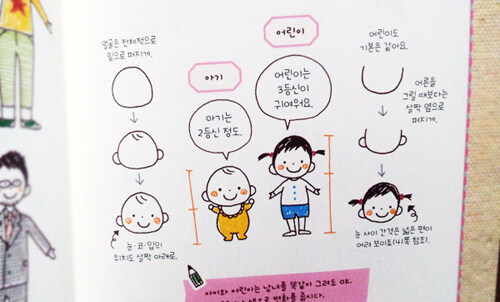 얼굴은 전체적으로
밑으로 퍼지게.
아기
아기는
2등신 정도.
눈·코·입의
위치도 살짝 아래로.
어린이
어린이는
3등신이
귀여워요.
어린이도
기본은 같아요.
어른을
그릴 때보다는
살짝 옆으로
퍼지게.
눈 사이 간격은 넓은 편이
어려 보이죠(41쪽 참조).
아기와 어린이는 남녀를 똑같이 그려도 OK.
변화를 줍시다.